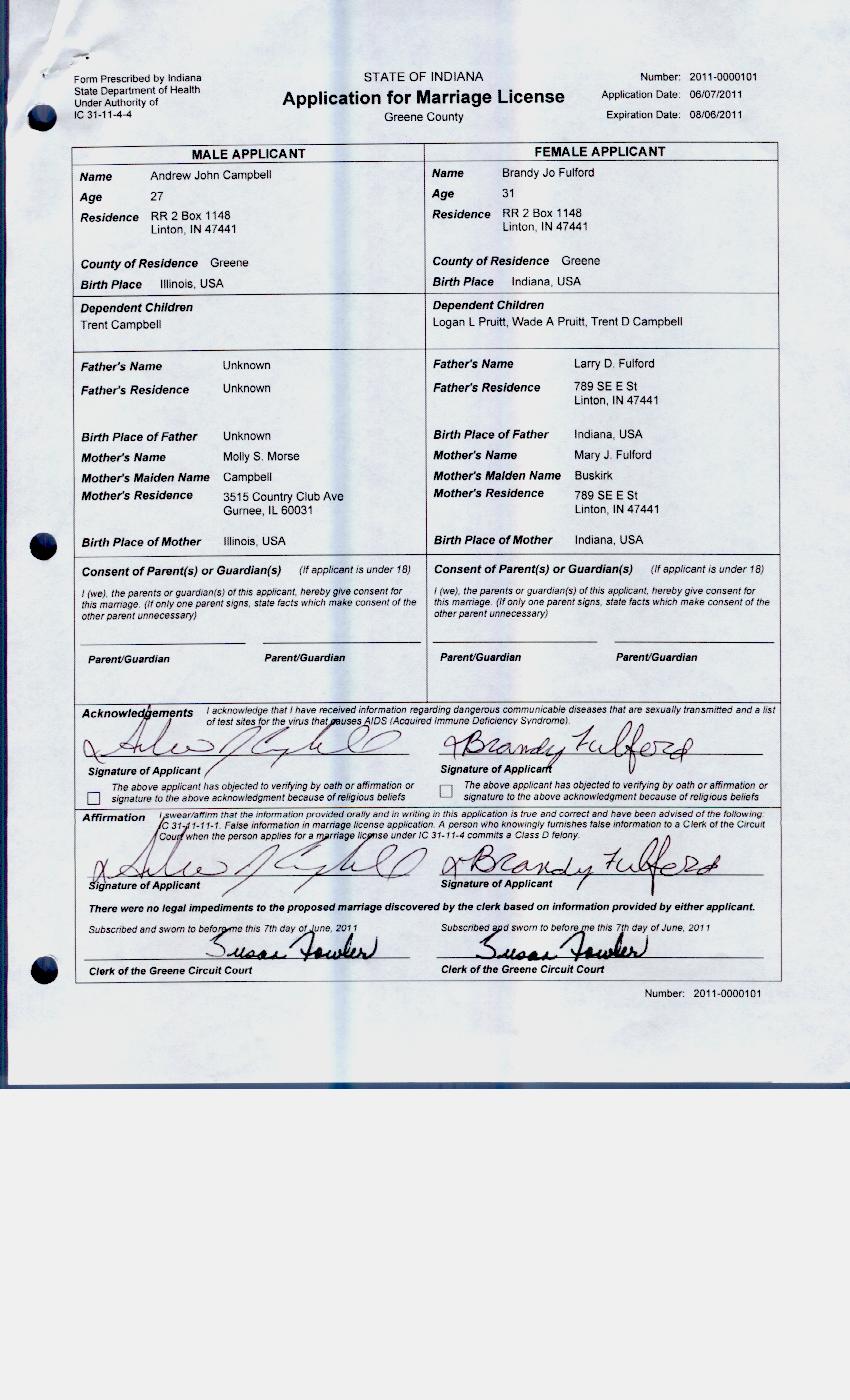 Form Prescribed by Indiana
State Department of Health
Under Authority of
IC 31-11-4-4
STATE OF INDIANA
Application for Marriage License
Greene County
Number: 2011-0000101
Application Date: 06/07/2011
Expiration Date: 08/06/2011
MALE APPLICANT
Name Andrew John Campbell
Age 27
Residence RR 2 Box 1148
Linton, IN 47441
County of Residence Greene
Birth Place Illinois, USA
Dependent Children
Trent Campbell
Father's Name Unknown
Father's Residence Unknown
Birth Place of Father Unknown
Mother's Name Molly S. Morse
Mother's Maiden Name Campbell
Mother's Residence 3515 Country Club Ave
Gurnee, IL 60031
Birth Place of Mother Illinois, USA
Consent of Parent(s) or Guardian(s) (If applicant is under 18)
I (we), the parents or guardian(s) of this applicant, hereby give consent for
this marriage. (If only one parent signs, state facts which make consent of the
other parent unnecessary)
Parent/Guardian Parent/Guardian
FEMALE APPLICANT
Name Brandy Jo Fulford
Age 31
Residence RR 2 Box 1148
Linton, IN 47441
County of Residence Greene
Birth Place Indiana, USA
Dependent Children
Logan L Pruitt, Wade A Pruitt, Trent D Campbell
Father's Name Larry D. Fulford
Father's Residence 789 SE E St
Linton, IN 47441
Birth Place of Father Indiana, USA
Mother's Name Mary J. Fulford
Mother's Maiden Name Buskirk
Mother's Residence 789 SE E St
Linton, IN 47441
Birth Place of Mother Indiana, USA
Consent of Parent(s) or Guardian(s) (If applicant is under 18)
I (we), the parents or guardian(s) of this applicant, hereby give consent for
this marriage. (If only one parent signs, state facts which make consent of the
other parent unnecessary)
Parent/Guardian Parent/Guardian
Acknowledgements I acknowledge that I have received information regarding dangerous communicable diseases that are sexually transmitted and a list
of test sites for the virus that causes AIDS (Acquired Immune Deficiency Syndrome).
Brandy Fulford
Signature of Applicant Signature of Applicant
The above applicant has objected to verifying by oath or affirmation or
signature to the above acknowledgment because of religious beliefs
The above applicant has objected to verifying by oath or affirmation or
signature to the above acknowledgment because of religious beliefs
Affirmation I swear/affirm that the information provided orally and in writing in this application is true and correct and have been advised of the following:
IC 31-11-11-1. False information in marriage license application. A person who knowingly furnishes false information to a Clerk of the Circuit
Court when the person applies for a marriage license under IC 31-11-4 commits a Class D felony.
Brandy Fulford
Signature of Applicant Signature of Applicant
There were no legal impediments to the proposed marriage discovered by the clerk based on information provided by either applicant.
Subscribed and sworn to before me this 7th day of June, 2011 Subscribed and sworn to before me this 7th day of June, 2011
Susan Fowler Susan Fowler
Clerk of the Greene Circuit Court Clerk of the Greene Circuit Court
Number: 2011-0000101